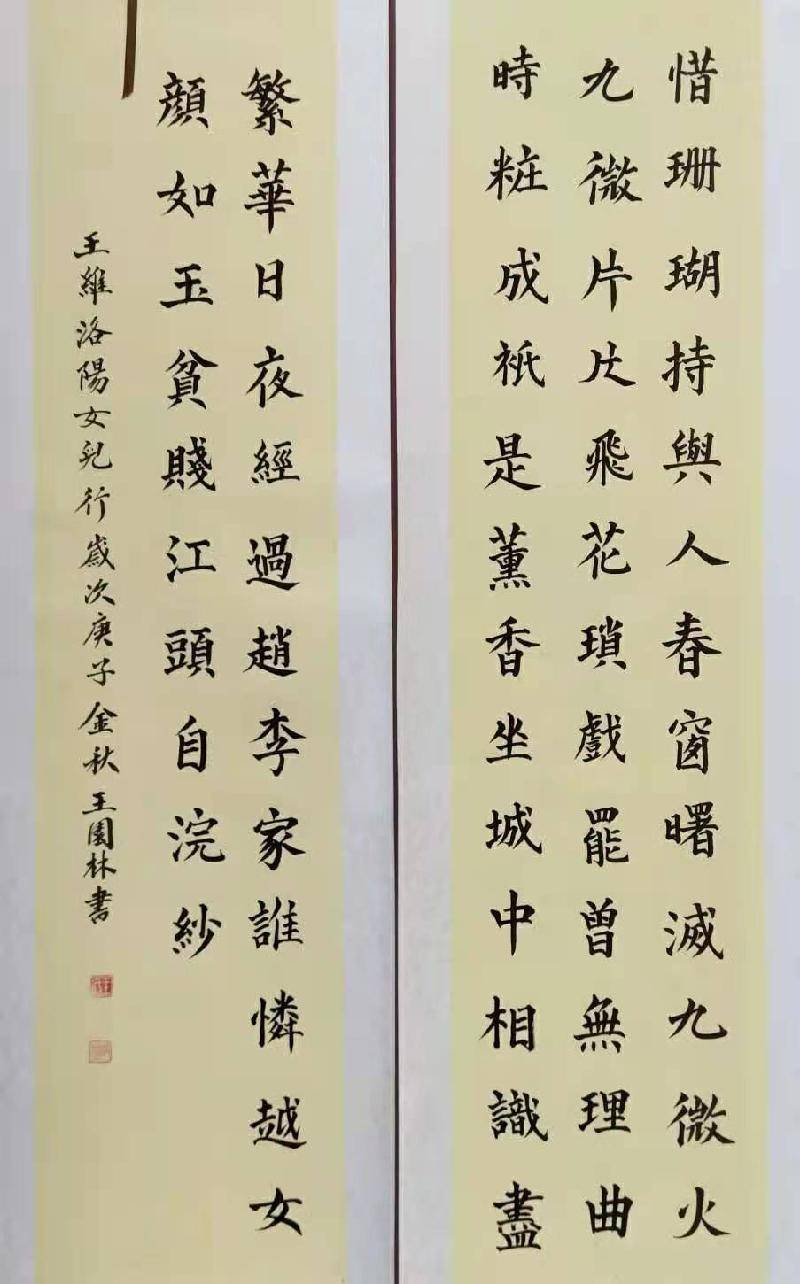 惜珊瑚持與人春窗曙滅九微火
九微片片飛花瑣戲罷曾無理曲
時粧成祇是薰香坐城中相識盡
繁華日夜經過趙李家誰憐越女
顔如玉貧賤江頭自浣紗
王維洛陽女兒行歲次庚子金秋王園林書